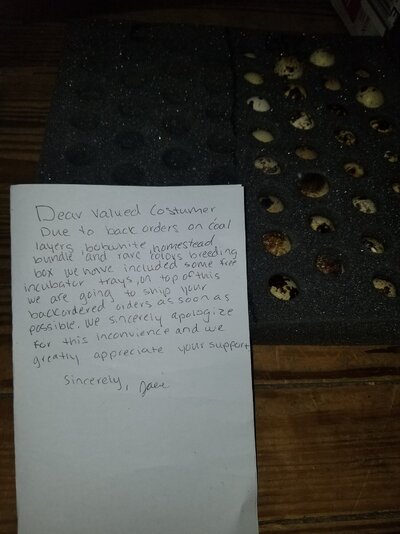 Dear Valued Costumer
Due to back orders on coal
layers, bobwhite, homestead
bundle, and rare colors breeding
box we have included some free
incubator trays, on top of this
we are going to ship your
backordered orders as soon as
possible. We sincerely apologize
for this inconvience and we
greatly appreciate your support
Sincerely,